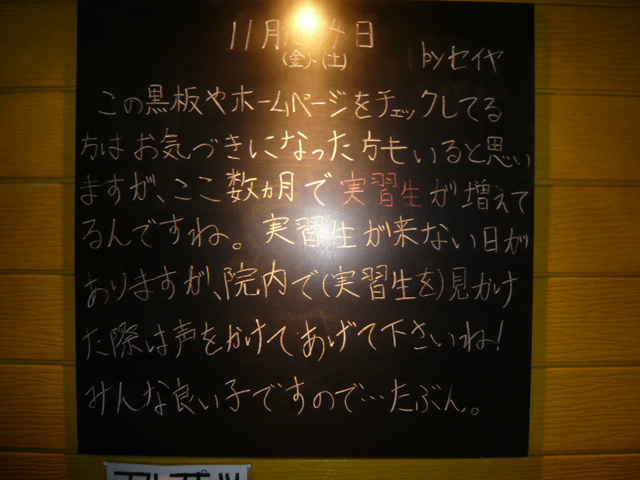 11月 4日
(金)、(土)
byセイヤ
この黒板やホームページをチェックしてる
方はお気づきになった方もいると思い
ますが、ここ数ヵ月で実習生が増えて
るんですね。実習生が来ない日が
ありますが、院内で(実習生を)見かけ
た際は声をかけてあげて下さいね!
みんな良い子ですので…たぶん。